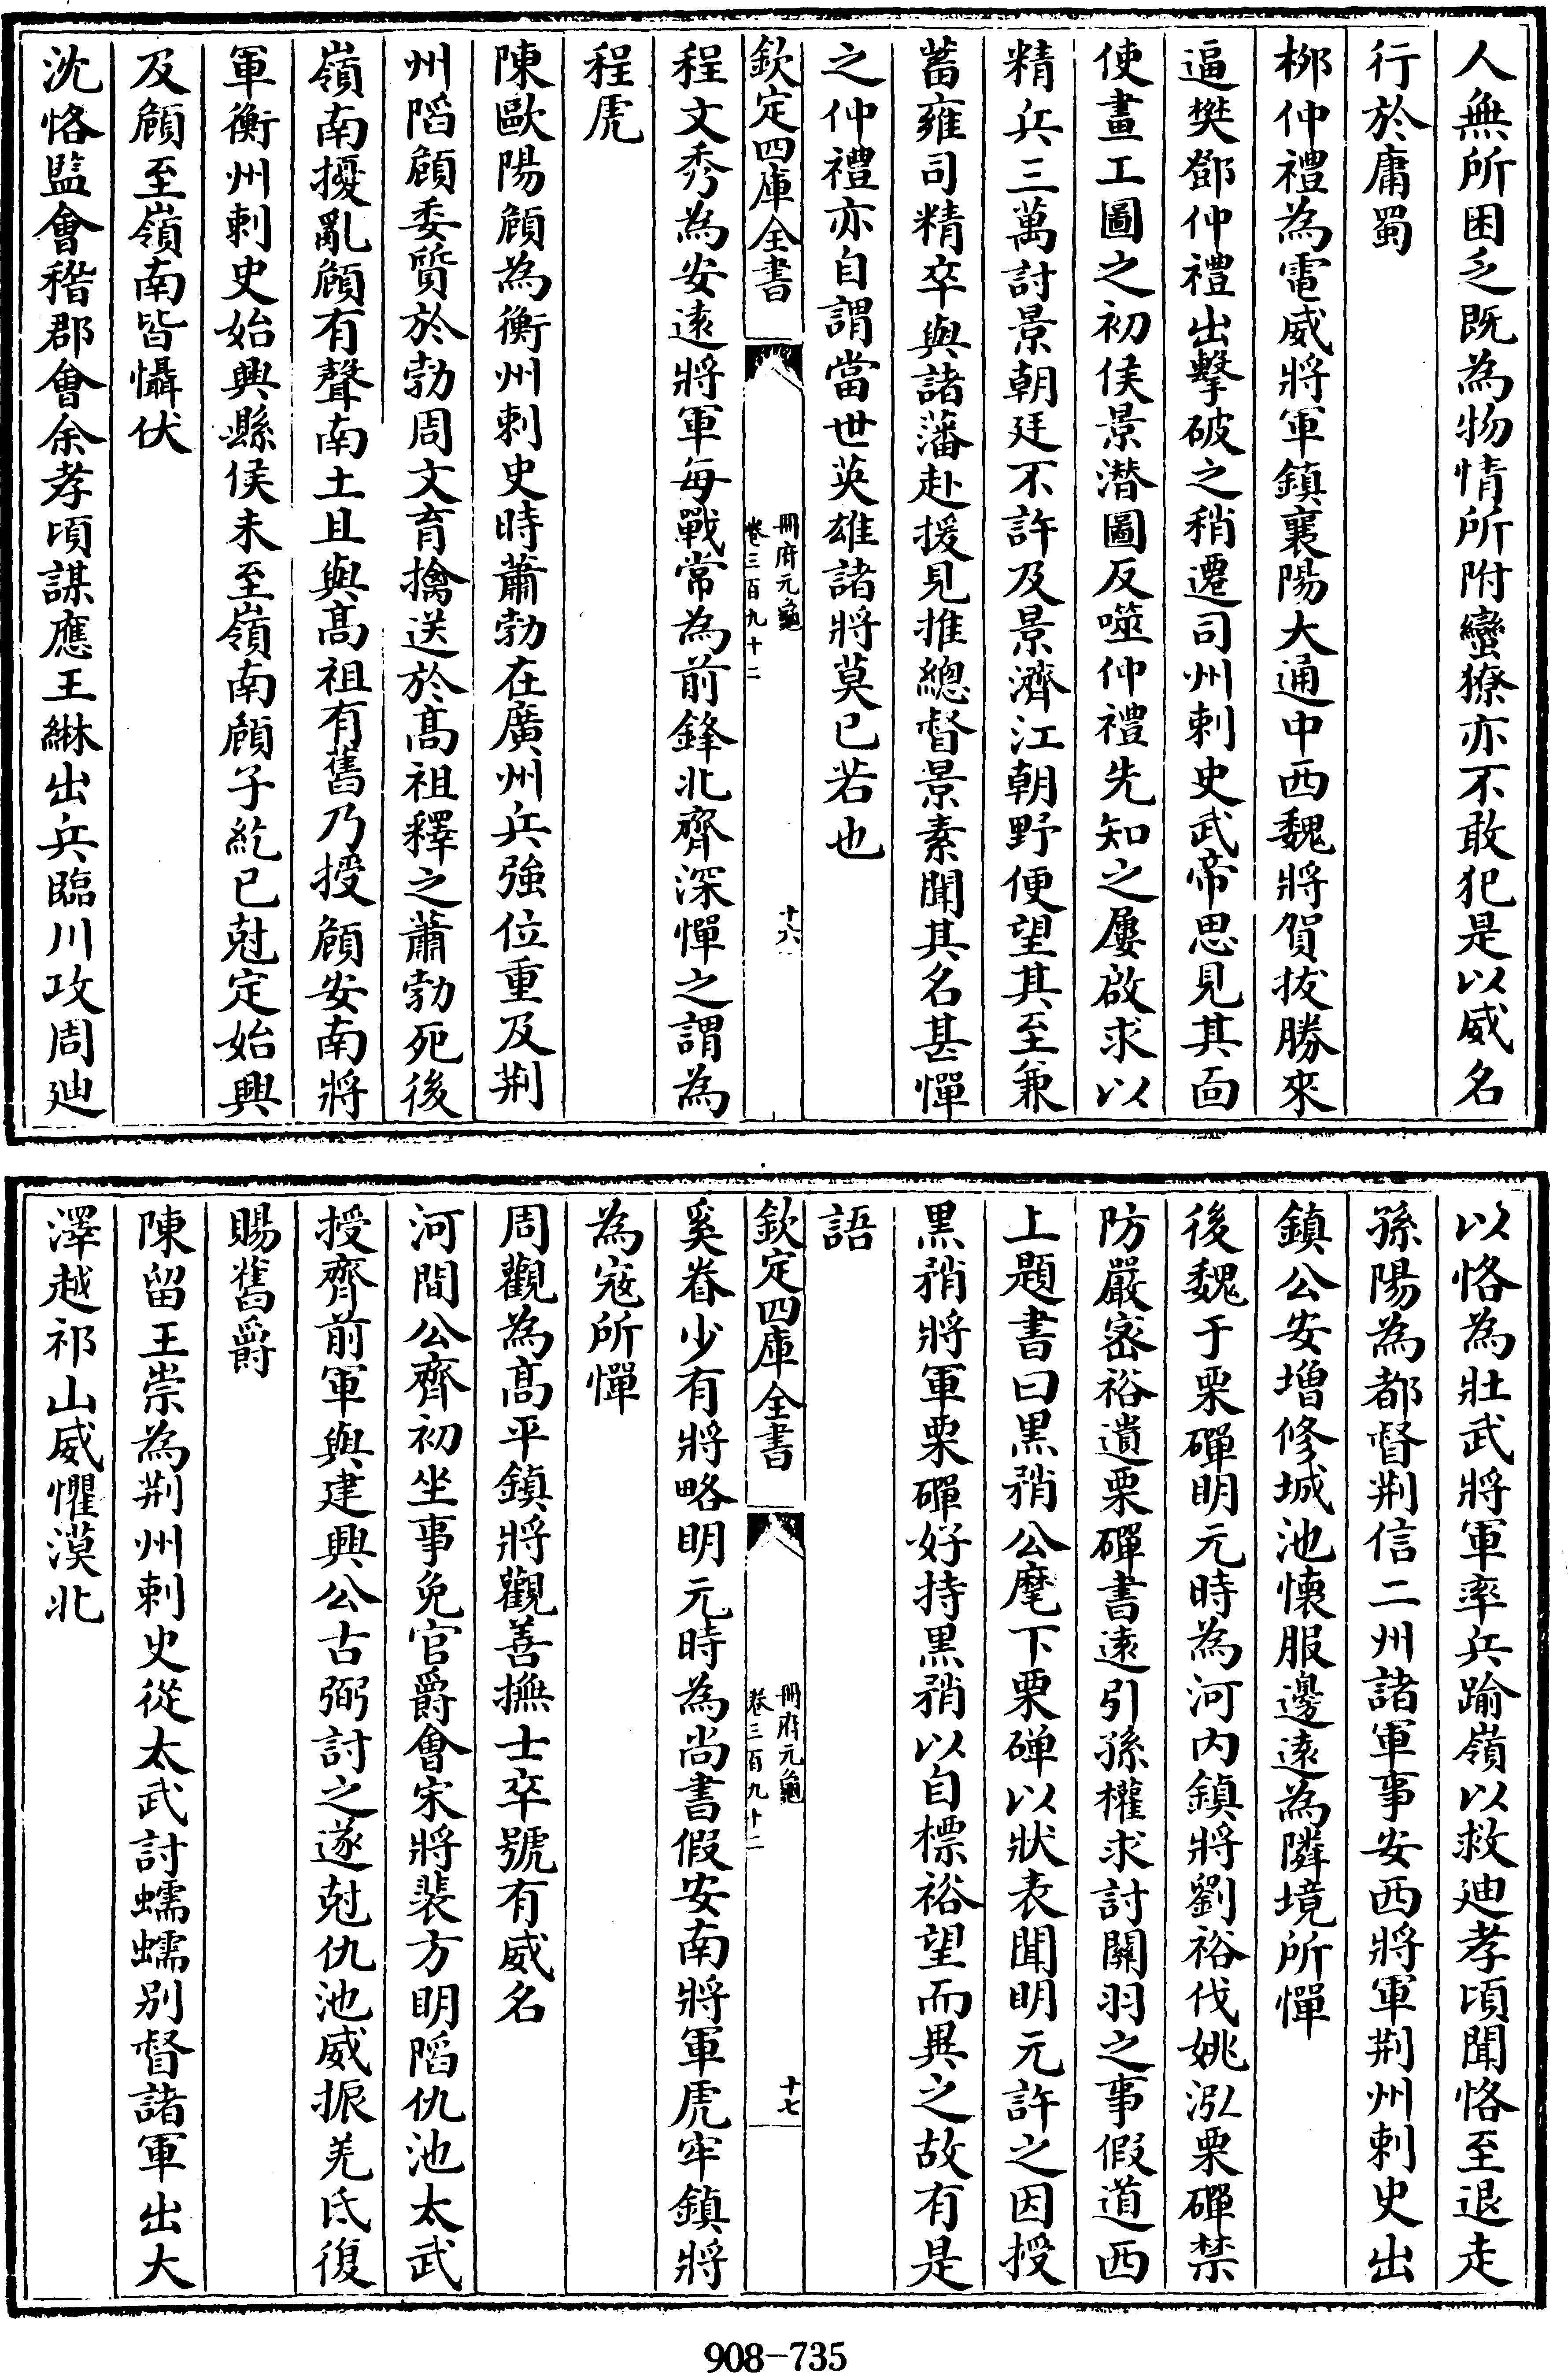 人無所困乏既為物情所附蠻獠亦不敢犯是以威名
行於庸蜀
桞仲禮為電威將軍鎮襄陽大通中西魏將賀拔勝來
逼樊鄧仲禮出擊破之稍遷司州刺史武帝思見其面
使畫工圖之初侯景潛圖反噬仲禮先知之屢啟求以
精兵三萬討景朝廷不許及景濟江朝野便望其至兼
蓄雍司精卒與諸藩赴援見推總督景素聞其名甚憚
之仲禮亦自謂當世英雄諸將莫已若也
欽定四庫全書
冊府元龜
卷三百九十二
十六
程文秀為安逺將軍每戰常為前鋒北齊深憚之謂為
程虎
陳歐陽頠為衡州刺史時蕭勃在廣州兵強位重及荆
州䧟頠委質於勃周文育擒送於髙祖釋之蕭勃死後
嶺南擾亂頠有聲南土且與髙祖有舊乃授頠安南將
軍衡州刺史始興縣侯未至嶺南頠子紇已尅定始興
及頠至嶺南皆懾伏
沈恪監會稽郡會余孝頃謀應王綝出兵臨川攻周廸
以恪為壯武將軍率兵踰嶺以救廸孝頃聞恪至退走
孫陽為都督荆信二州諸軍事安西將軍荆州刺史出
鎮公安增修城池懐服邊逺為隣境所憚
後魏于栗磾明元時為河内鎮將劉裕伐姚泓栗磾禁
防嚴宻裕遺栗磾書逺引孫權求討關羽之事假道西
上題書曰黒矟公麾下栗磾以狀表聞明元許之因授
黒矟將軍栗磾好持黒矟以自標裕望而異之故有是
語
欽定四庫全書
冊府元龜
卷三百九十二
十七
奚眷少有將略明元時為尚書假安南將軍虎牢鎮將
為宼所憚
周觀為髙平鎮將觀善撫士卒號有威名
河間公齊初坐事免官爵會宋將裴方明䧟仇池太武
授齊前軍與建興公古弼討之遂尅仇池威振羌氐復
賜舊爵
陳留王崇為荆州刺史從太武討蠕蠕别督諸軍出大
澤越祁山威懼漠北
908-735